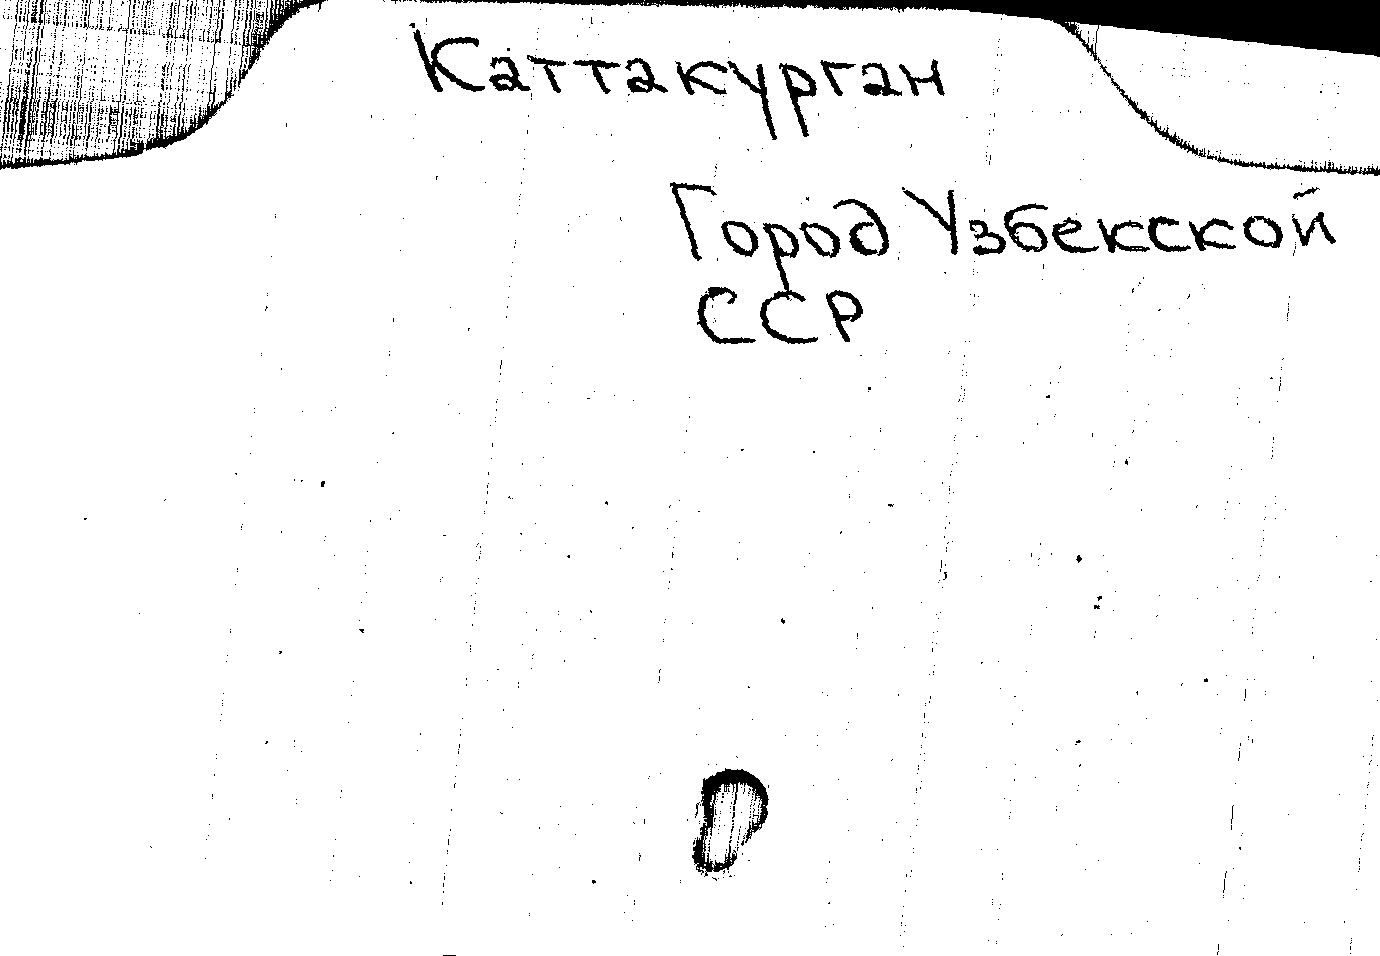 Каттакурган
Город Узбекской
ССР